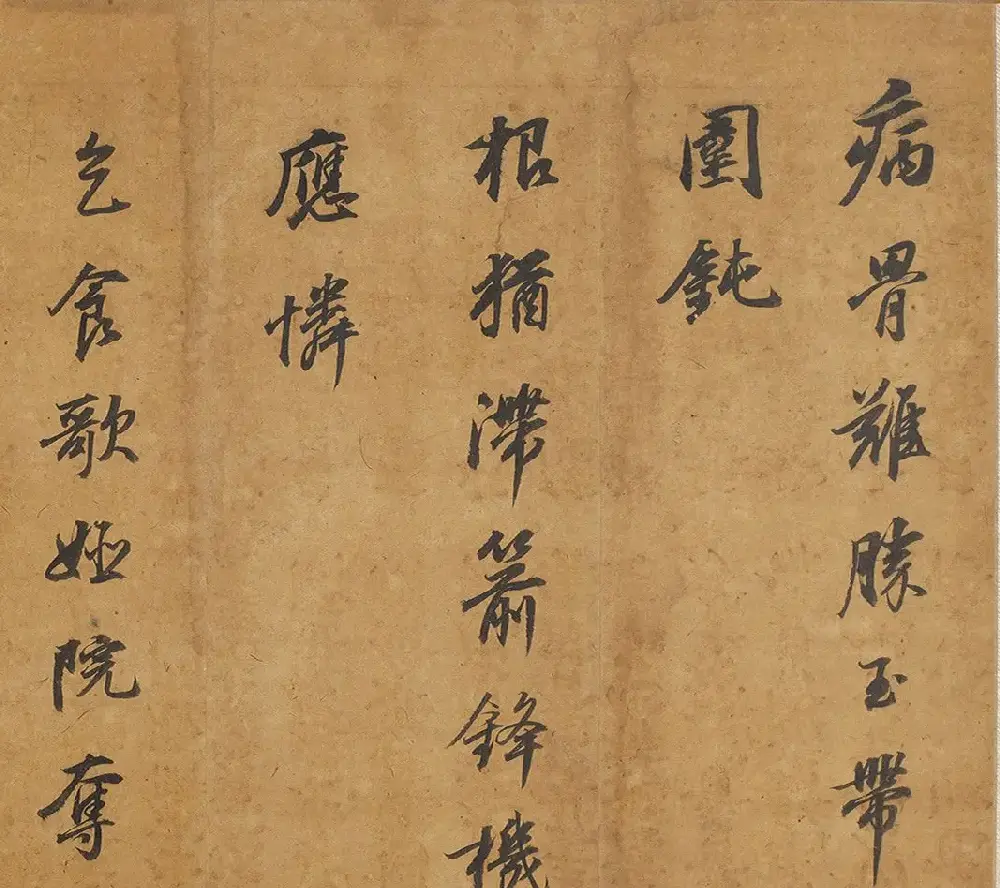 病骨難勝玉帶
圍鈍
根猶滯箭鋒機
應憐
乞食歌姬院奪